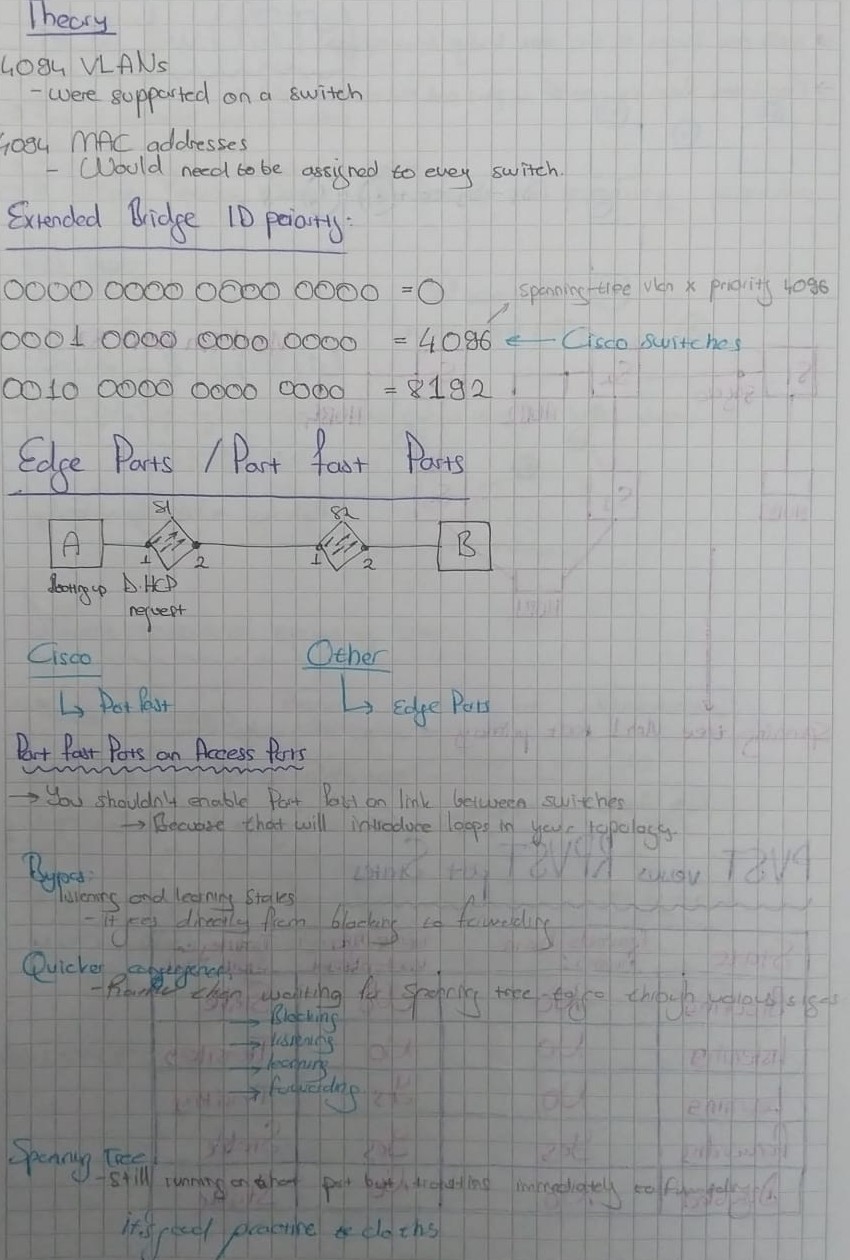 Theory
4094 VLANs
- were supported on a switch
4094 MAC addresses
- Would need to be assigned to evey switch.
Extended Bridge ID peiorty:
0000 0000 0000 0000 = 0
spanning-tree vlan x priority 4096
0001 0000 0000 0000 = 4096 ← Cisco switches
0010 0000 0000 0000 = 8192
Edge Ports / Port fast Ports
S1 S2
A 1 2 1 2 B
Booting up D.HCP
request
Cisco Other
↳ Port Fast ↳ Edge Ports
Port fast Ports on Access Ports
→ You shouldn't enable Port Fast on link between switches
→ Because that will introduce loops in your topology.
Bypass:
listening and learning States
- It goes directly from blocking to forwarding
Quicker convergence
- Rather than waiting for Spanning tree to go through various stages
→ Blocking
→ listening
→ learning
→ forwarding
Spanning Tree
- Still running on that port but immediately to
it's good practice to do this